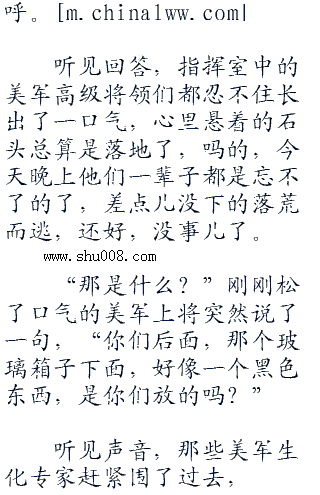 呼。[m.china1ww.com]
听见回答，指挥室中的
美军高级将领们都忍不住长
出了一口气，心里悬着的石
头总算是落地了，吗的，今
天晚上他们一辈子都是忘不
了的了，差点儿没下的落荒
而逃，还好，没事儿了。
www.shu008.com
“那是什么？”刚刚松
了口气的美军上将突然说了
一句，“你们后面，那个玻
璃箱子下面，好像一个黑色
东西，是你们放的吗？”
听见声音，那些美军生
化专家赶紧围了过去，